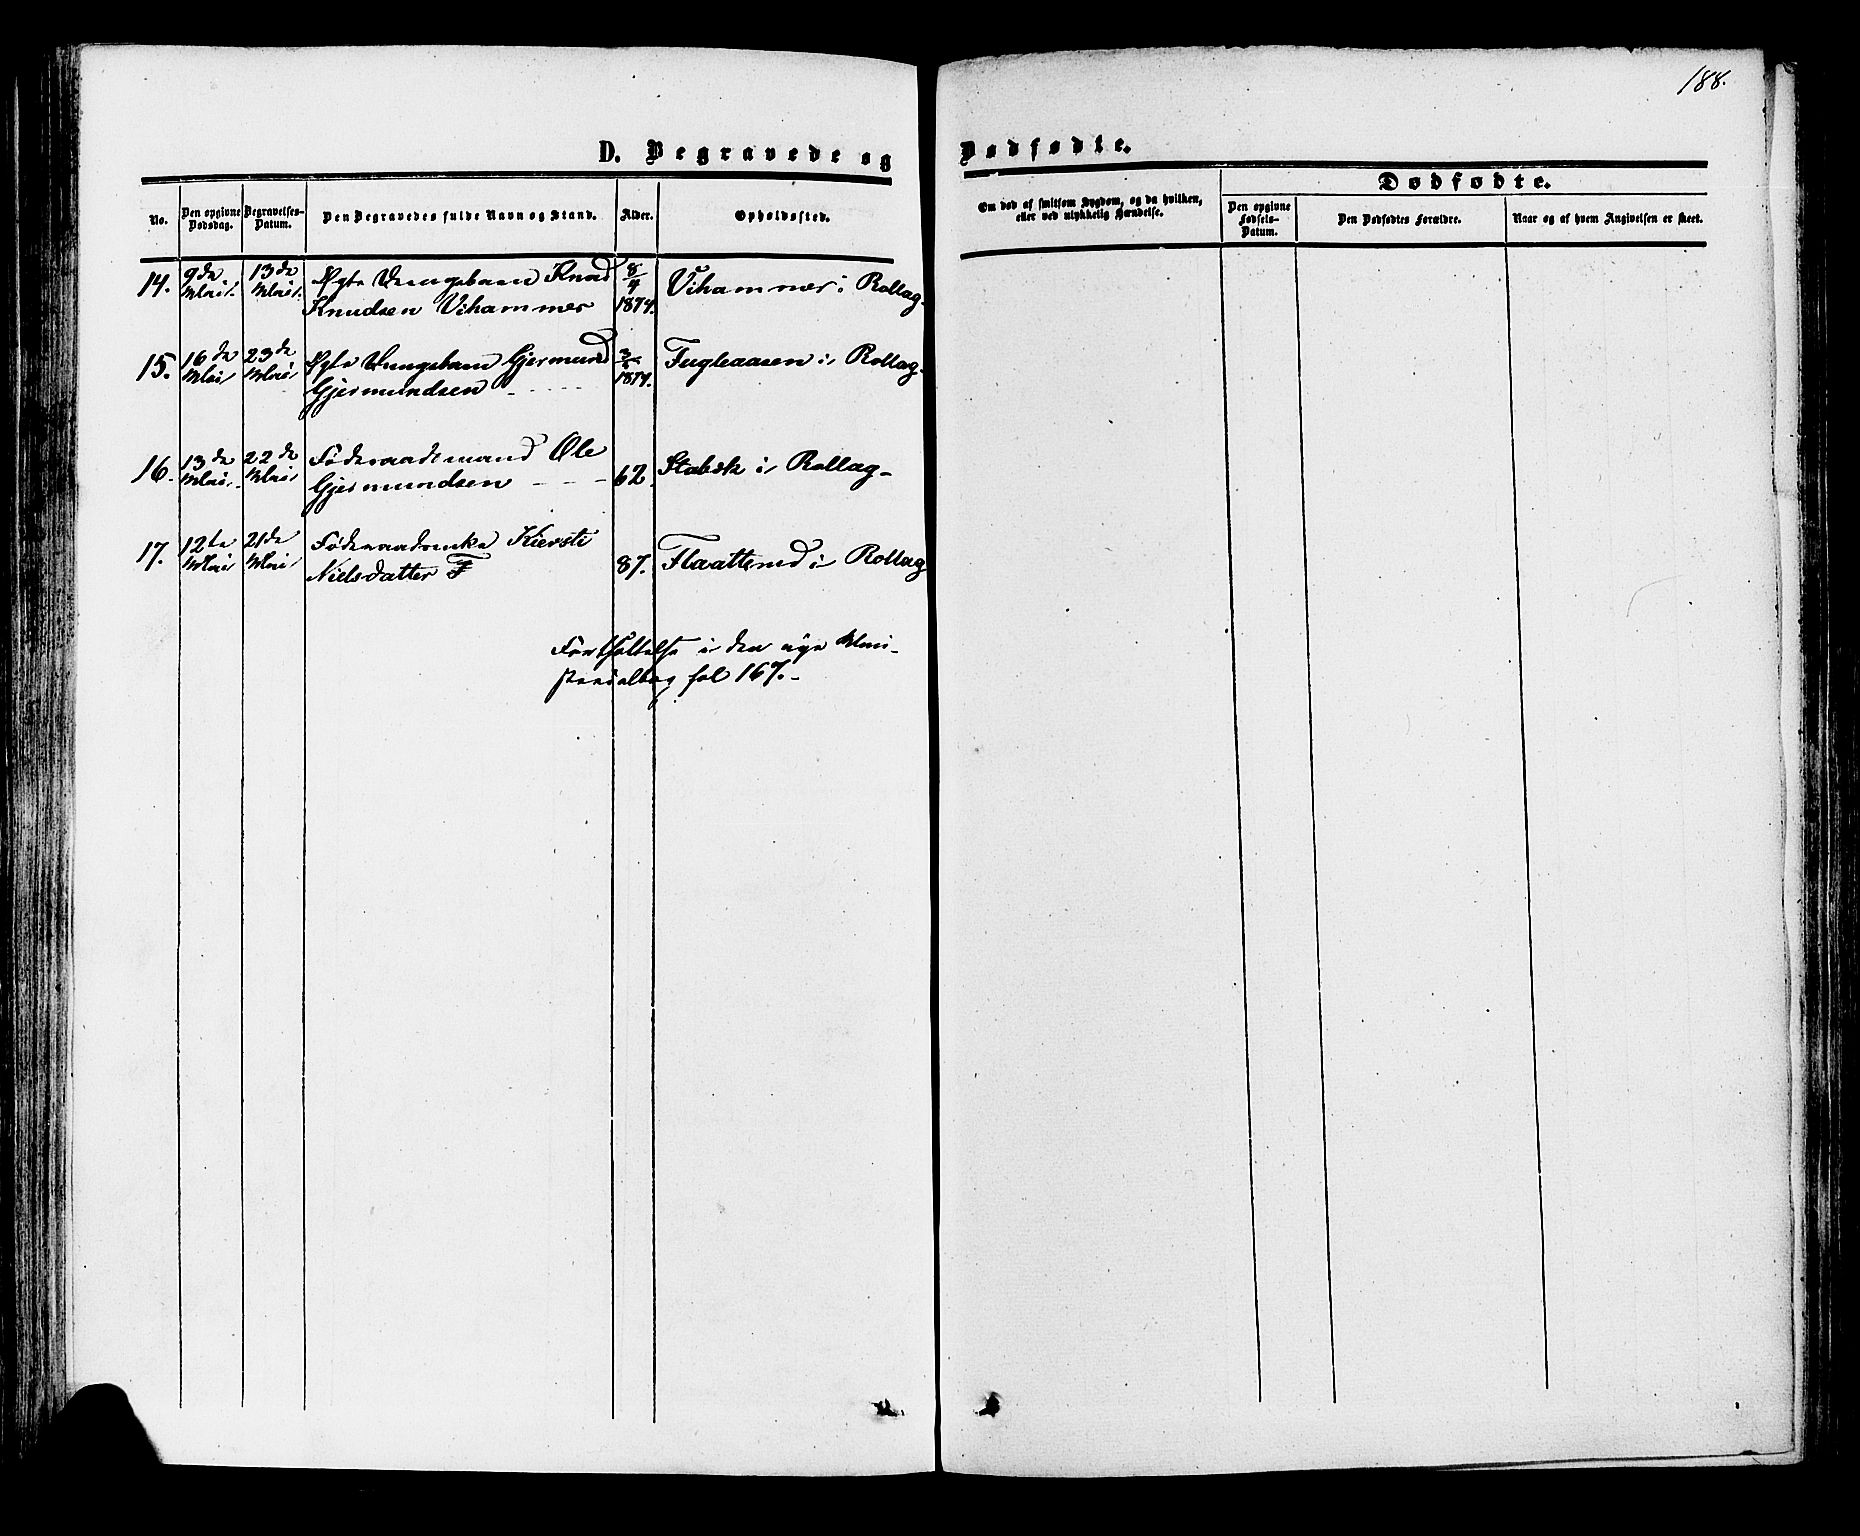 188.
D. Begravede og Dødfødte.
No.
Den opgivne Dødsdag.
Begravelses-Datum.
Den Begravedes fulde Navn og Stand.
Alder.
Opholdssted.
Om død af smitsom Sygdom, og da hvilken,
eller ved ulykkelig Hændelse.
Dødfødte.
Den opgivne Fødsels-Datum.
Den Dødfødtes Forældre.
Naar og af hvem Angivelsen er skeet.
14. 9de 13de Ægte Knud 8/4 Vihammer i Rollag
Mai. Mai. Knudsen Vihammer 1874.
15. 16de 23de Ægte Gjermund 1874. Fugleaasen i Rollag
Mai Mai Gjermundsen
16. 13de 22de Føderaadsmand Ole 62. Stabæk i Rollag
Mai Mai Gjermundsen
17. 12te 21de Føderaadsenke Kiersti 87. Flaatterud i Rollag
Mai Mai Nielsdatter F
Fortsættelse i den nye Mini-
sterialbog fol 167.